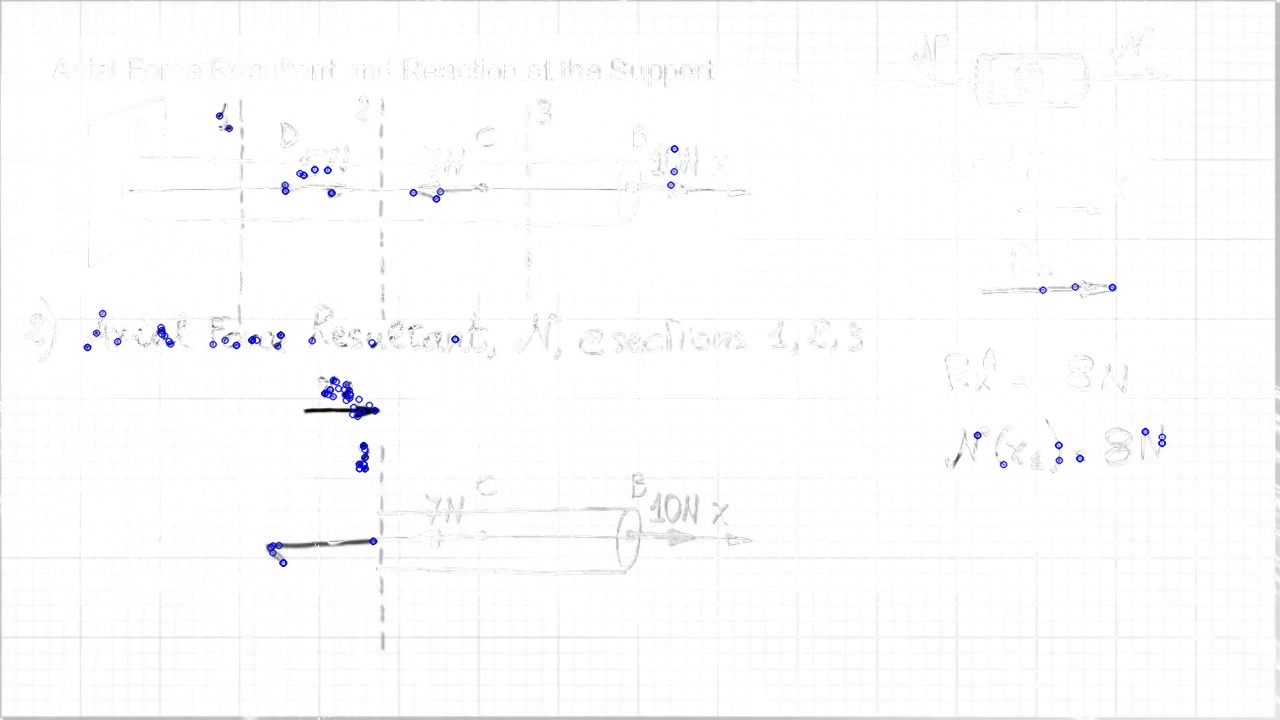 Axial Force Resultant and Reaction at the Support
N N
1 2 3
D C B
7N 10N x
2) Axial Force Resultant, N, @ sections 1, 2, 3
8N
N(x1) = 8N
C B
7N 10N x